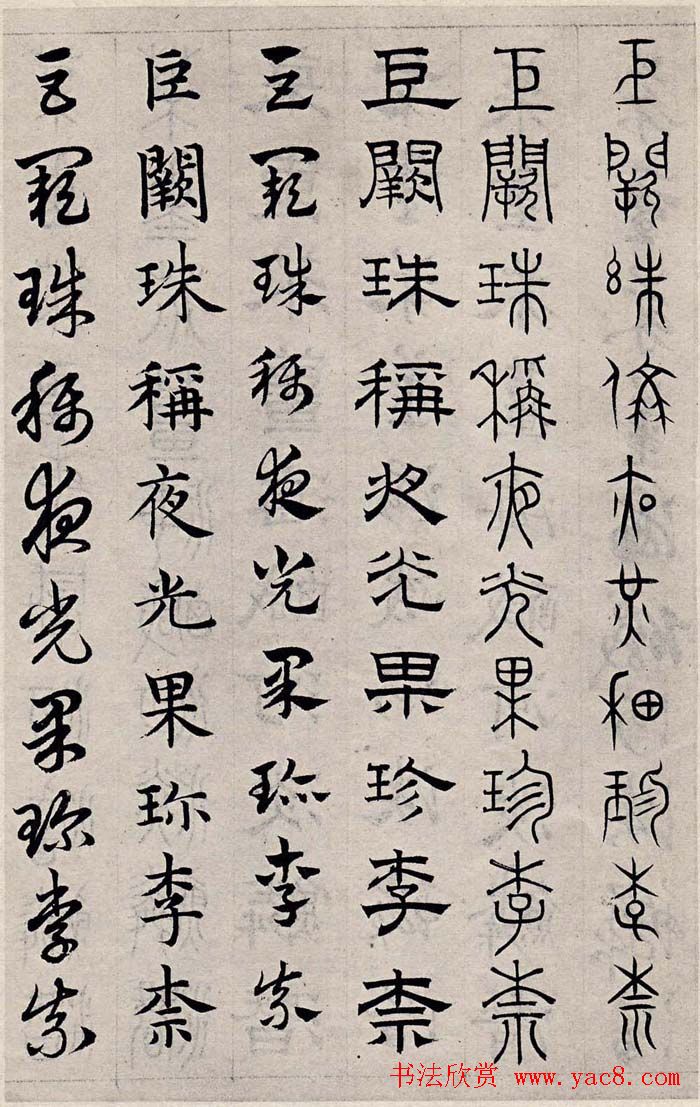 巨闕珠稱夜光果珍李柰
巨闕珠稱夜光果珍李柰
巨闕珠稱夜光果珍李柰
巨闕珠稱夜光果珎李柰
巨闕珠稱夜光果珎李柰
巨闕珠稱夜光果珎李柰
书法欣赏 www.yac8.com